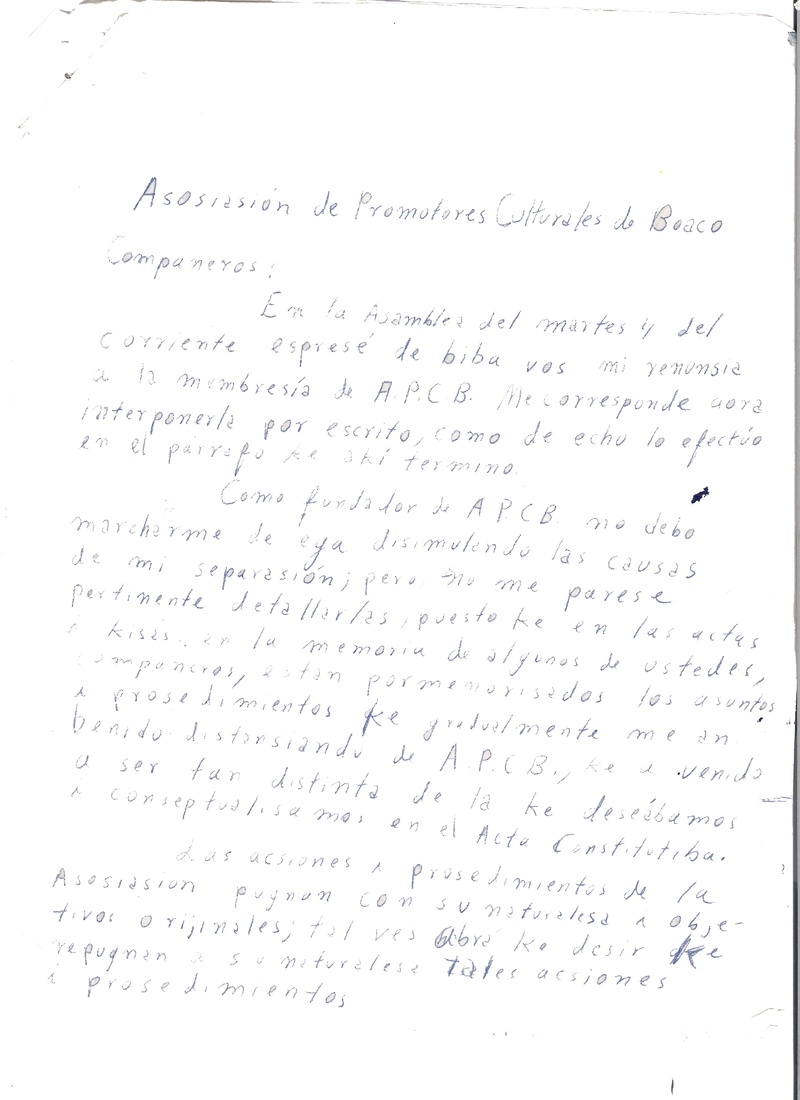 Asosiasión de Promotores Culturales de Boaco
Compañeros:
En la Asamblea del martes 4 del
corriente espresé de biba vos mi renunsia
a la membresía de A.P.C.B. Me corresponde aora
interponerla por escrito, como de echo lo efectúo
en el párrafo ke akí termino.
Como fundador de A.P.C.B. no debo
marcharme de eya disimulando las causas
de mi separasión; pero no me parese
pertinente detallarlas, puesto ke en las actas
i kisás en la memoria de algunos de ustedes,
compañeros, están pormenorisados los asuntos
i prosedimientos ke gradualmente me an
benido distansiando de A.P.C.B., ke a venido
a ser tan distinta de la ke deseábamos
i conseptualisamos en el Acta Constitutiba.
Las acsiones i prosedimientos de la
Asosiasion pugnan con su naturalesa i obje-
tivos orijinales; tal ves abrá ke desir ke
repugnan a su naturalesa tales acsiones
i prosedimientos